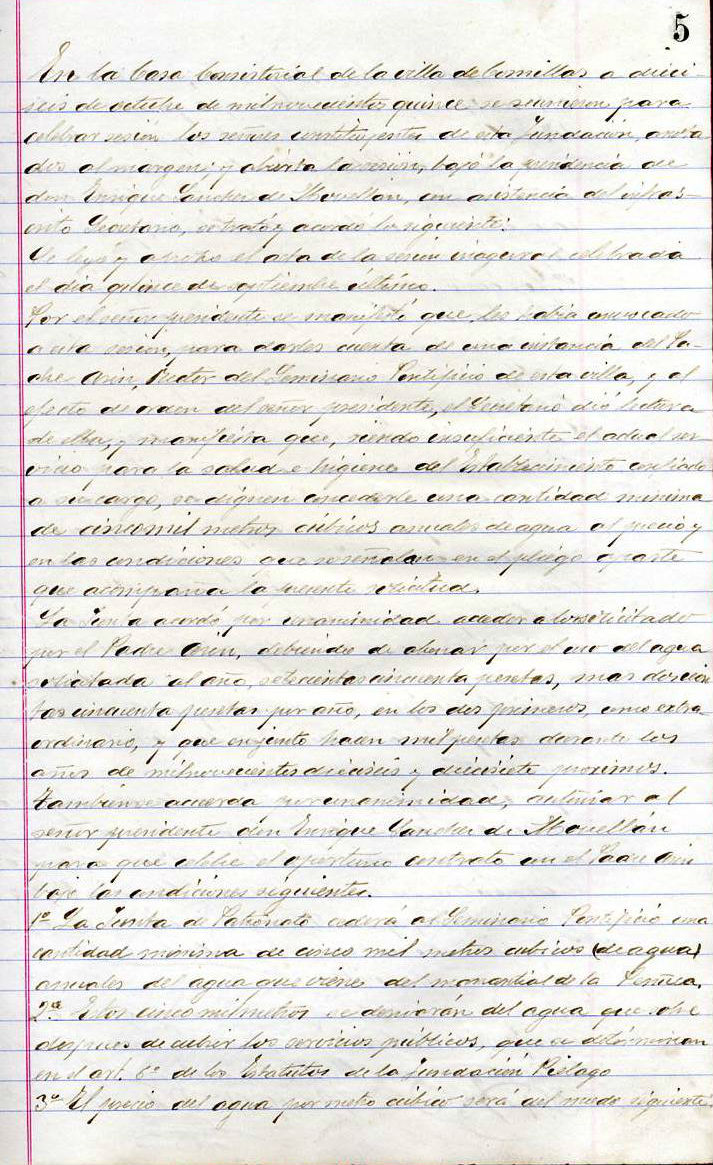 5
En la Casa Consistorial de la villa de Comillas a dieci-
seis de octubre de mil novecientos quince se reunieron para
celebrar sesión los señores constituyentes de esta Fundación, anota-
dos al margen; y abierta la sesión, bajo la presidencia de
don Enrique Sanchez de Movellán, con asistencia del infras-
crito Secretario, se trató y acordó lo siguiente:
Se leyó y aprobó el acta de la sesión inagural celebrada
el dia quince de septiembre último.
Por el señor presidente se manifestó que les habia convocado
a esta sesion, para darles cuenta de una instancia del Pa-
dre Arin, Rector del Seminario Pontificio de esta villa, y al
efecto de orden del señor presidente, el Secretario dió lectura
de ella, y manifiesta que, siendo insuficiente el actual ser-
vicio para la salud e higiene del Establecimiento confiado
a su cargo, se dignen concederle una cantidad minima
de cinco mil metros cúbicos anuales de agua al precio y
en las condiciones que se señalan en el pliego aparte
que acompaña la presente solicitud.
La Junta acordó por unanimidad acceder a lo solicitado
por el Padre Arin, debiendo de abonar por el uso del agua
solicitada al año, setecientas cincuenta pesetas, mas doscien-
tas cincuenta pesetas por año, en los dos primeros, como extra-
ordinario, y que en junto hacen mil pesetas durante los
años de mil novecientos dieciseis y diecisiete proximos.
Tambien se acuerda por unanimidad, autorizar al
señor presidente don Enrique Sanchez de Movellán
para que celebre el oportuno contrato con el Padre Arin
bajo las condiciones siguientes.
1ª La Junta de Patronato cederá al Seminario Pontificio una
cantidad minima de cinco mil metros cubicos (de agua)
anuales del agua que viene del manantial de la Peñuca.
2ª Estos cinco mil metros se derivarán del agua que sobre
despues de cubrir los servicios públicos, que se determinan
en el art. 6º de los Estatutos de la Fundación Piélago
3ª El precio del agua por metro cúbico será del modo siguiente: